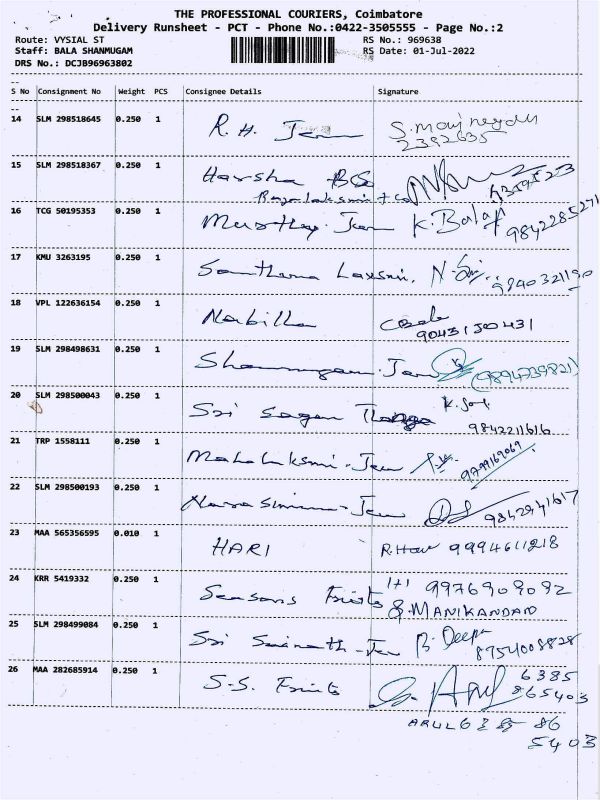 THE PROFESSIONAL COURIERS, Coimbatore
Delivery Runsheet - PCT - Phone No.:0422-3505555 - Page No.:2
Route: VYSIAL ST RS No.: 969638
Staff: BALA SHANMUGAM RS Date: 01-Jul-2022
DRS No.: DCJB96963802
S No Consignment No Weight PCS Consignee Details Signature
14 SLM 298518645 0.250 1 R.H. Jem
2392635
15 SLM 298518367 0.250 1 Harsha
16 TCG 50195353 0.250 1 Murthy Jem K. Balaji 9842285271
17 KMU 3263195 0.250 1 Santhana Laxsmi. 9840321190
18 VPL 122636154 0.250 1 Nabilla
9043150431
19 SLM 298498631 0.250 1 Shanmugam Jem (9894739821)
20 SLM 298500043 0.250 1 Sri Sagan Thanga
9842211616
21 TRP 1558111 0.250 1 Mahalaksmi - Jem 9799169069
22 SLM 298500193 0.250 1 Narasimma - Jem 9842941617
23 MAA 565356595 0.010 1 HARI R.Hari 9994611218
24 KRR 5419332 0.250 1 Seasons Fruits 9976909092
S. MANIKANDAN
25 SLM 298499084 0.250 1 Sri Srinath - Jem B. Deepa
8754008828
26 MAA 282685914 0.250 1 S.S. Fruits 6385
865403
ARUL 6385 86
5403